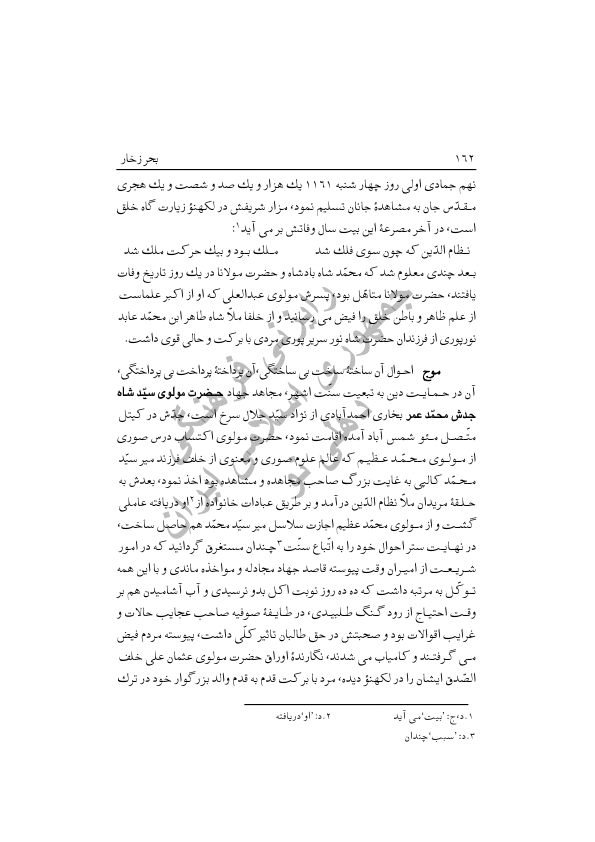 ۱۶۲ بحر زخار
نهم جمادی اولی روز چهار شنبه ۱۱۶۱ یك هزار و یك صد و شصت و یك هجری
مقدّس جان به مشاهدهٔ جانان تسلیم نمود، مزار شریفش در لکهنؤ زیارت گاه خلق
است، در آخر مصرعهٔ این بیت سال وفاتش بر می آید۱:
نظام الدّین که چون سوی فلك شد ملك بود و بیك حرکت ملك شد
بعد چندی معلوم شد که محمّد شاه بادشاه و حضرت مولانا در یك روز تاریخ وفات
یافتند، حضرت مولانا متاهّل بود، پسرش مولوی عبدالعلی که او از اکبر علماست
از علم ظاهر و باطن خلق را فیض می رسانید و از خلفا ملّا شاه طاهر ابن محمّد عابد
نورپوری از فرزندان حضرت شاه نور سریر پوری مردی با برکت و حالی قوی داشت.
موج احوال آن ساختهٔ ساخت بی ساختگی، آن پرداختهٔ پرداخت بی پرداختگی،
آن در حمایت دین به تبعیت سنّت اشهر، مجاهد جهاد حضرت مولوی سیّد شاه
جدش محمّد عمر بخاری احمدآبادی از نژاد سیّد جلال سرخ است، جدّش در کیتل
متّصل مئو شمس آباد آمده اقامت نمود، حضرت مولوی اکتساب درس صوری
از مولوی محمّد عظیم که عالم علوم صوری و معنوی از خلف فرزند میر سیّد
محمّد کالپی به غایت بزرگ صاحب مجاهده و مشاهده بود اخذ نمود، بعدش به
حلقهٔ مریدان ملّا نظام الدّین درآمد و بر طریق عبادات خانواده از۲ او دریافته عاملی
گشت و از مولوی محمّد عظیم اجازت سلاسل میر سیّد محمّد هم حاصل ساخت،
در نهایت ستر احوال خود را به اتّباع سنّت۳ چندان مستغرق گردانید که در امور
شریعت از امیران وقت پیوسته قاصد جهاد مجادله و مواخذه ماندی و با این همه
توکّل به مرتبه داشت که ده ده روز نوبت اکل بدو نرسیدی و آب آشامیدن هم بر
وقت احتیاج از رود گنگ طلبیدی، در طایفهٔ صوفیه صاحب عجایب حالات و
غرایب اقوالات بود و صحبتش در حق طالبان تاثیر کلّی داشت، پیوسته مردم فیض
می گرفتند و کامیاب می شدند، نگارندهٔ اوراق حضرت مولوی عثمان علی خلف
الصّدق ایشان را در لکهنؤ دیده، مرد با برکت قدم به قدم والد بزرگوار خود در ترك
۱. د،ج: 'بیت' می آید ۲. د: 'او' دریافته
۳. د: 'سبب' چندان